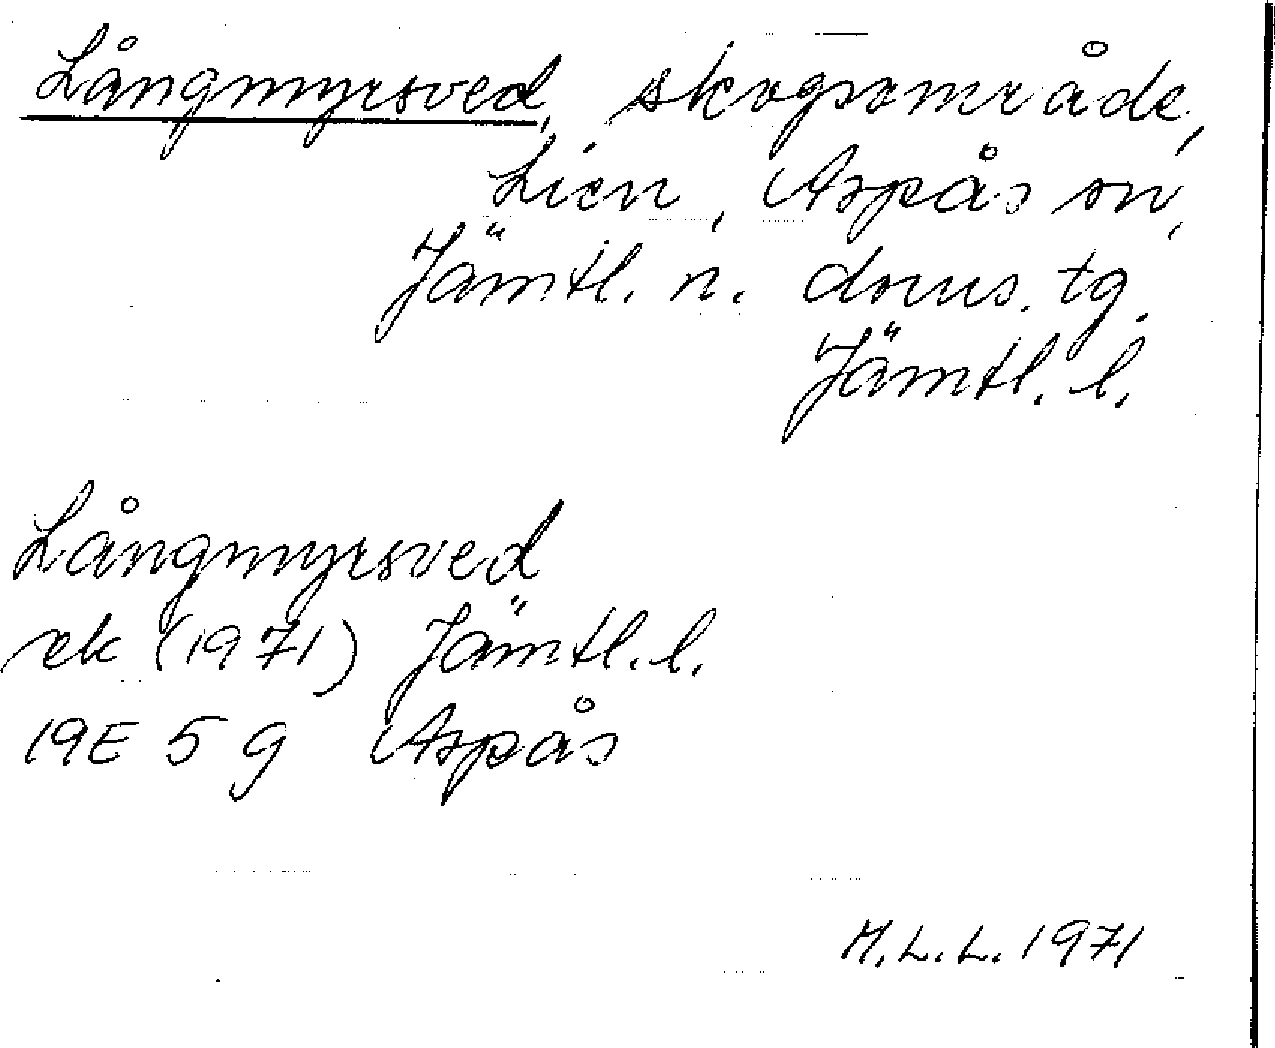 Långmyrsved, skogsområde,
Lien, Aspås sn,
Jämtl. n. doms. tg.
Jämtl. l.
Långmyrsved
ek (1971) Jämtl. l.
19E 5 g Aspås
M.L.L. 1971